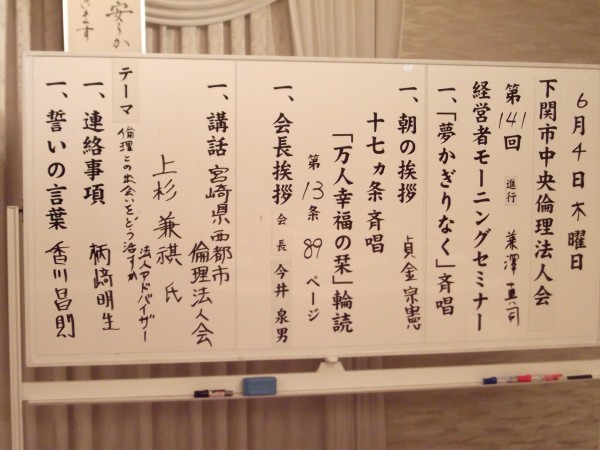 6月4日木曜日
下関市中央倫理法人会
第141回 進行
経営者モーニングセミナー
一、「夢かぎりなく」斉唱
一、朝の挨拶 貞金宗憲
十七ヵ条斉唱
「万人幸福の栞」輪読
第13条 89ページ
一、会長挨拶 会長 今井泉男
一、講話 宮崎県西都市
倫理法人会
法人アドバイザー
上杉兼祺氏
テーマ
倫理との出会いをどう活すか
一、連絡事項 柄崎明生
一、誓いの言葉 香川昌則
安らか
います